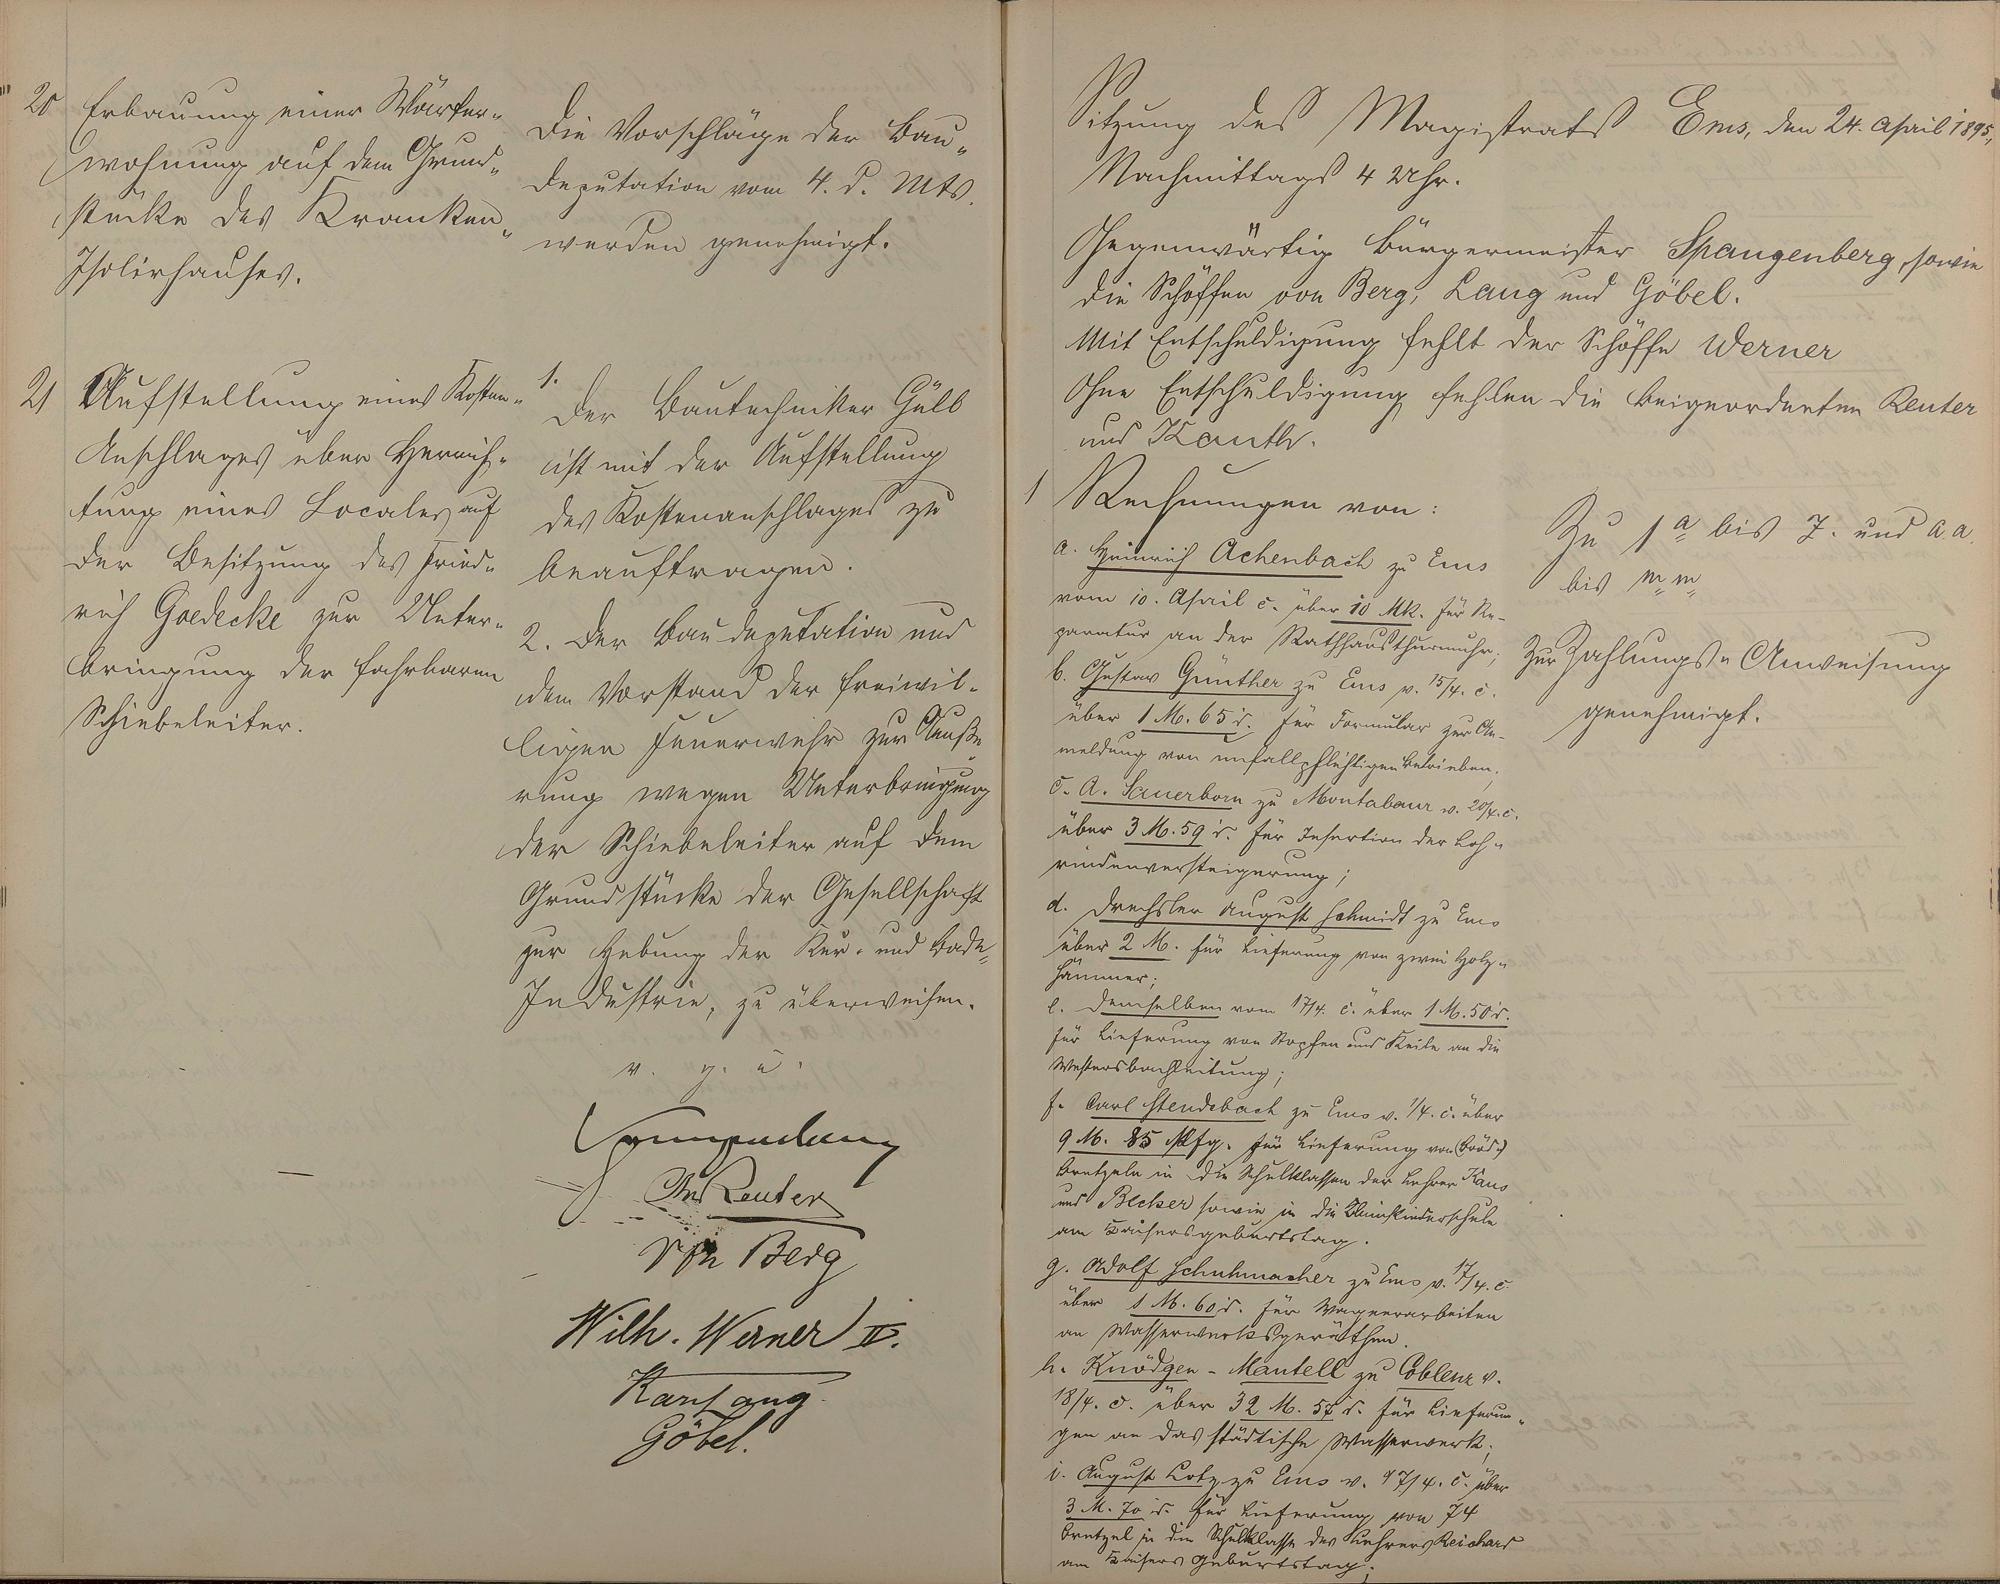 20 Erbauung einer Wärter-
wohnung auf dem Grund-
stücke des Kranken-
Isolirhauses.
Die Vorschläge der Bau-
deputation vom 4. d. Mts.
werden genehmigt.
21 Aufstellung eines Kosten-
Anschlages über Herrich-
tung eines Locales auf
der Besitzung des Fried-
rich Goedecke zur Unter-
bringung der fahrbaren
Schiebeleiter.
1.
Der Bautechniker Gülb
ist mit der Aufstellung
des Kostenanschlages zu
beauftragen.
2. Der Baudeputation und
dem Vorstand der freiwil-
ligen Feuerwehr zur Äuße-
rung wegen Unterbringung
der Schiebeleiter auf dem
Grundstücke der Gesellschaft
zur Hebung der Kur- und Bade-
Industrie, zu überweisen.
v. g. u.
Spangenberg
Reuter
von Berg
Wilh. Werner II.
Karl Lang
Göbel.
Sitzung des Magistrats Ems, den 24. April 1895,
Nachmittags 4 Uhr.
Gegenwärtig Bürgermeister Spangenberg, sowie
die Schöffen von Berg, Lang und Göbel.
Mit Entschuldigung fehlt der Schöffe Werner
Ohne Entschuldigung fehlen die Beigeordneten Reuter
und Kauth.
1 Rechnungen von:
a. Heinrich Achenbach zu Ems
vom 10. April c. über 10 Mk. für Re-
paratur an der Rathhausthurmuhr;
b. Gustav Günther zu Ems v. 15/4. c.
über 1 M. 65 d. für Formular zur An-
meldung von unfallpflichtigen Betrieben;
c. A. Sauerborn zu Montabaur v. 20/4. c.
über 3 M. 59 d. für Insertion der Loh-
rindenversteigerung;
d. Drechsler August Schmidt zu Ems
über 2 M. für Lieferung von zwei Holz-
hämmer;
e. Demselben vom 17/4. c. über 1 M. 50 d.
für Lieferung von Stopfen und Keile an die
Westersbachleitung;
f. Carl Stendebach zu Ems v. 1/4. c. über
9 M. 85 Pfg. für Lieferung von
Bretzeln in die Schulklassen der Lehrer Kaus
und Becker sowie in die Kleinkinderschule
am Kaisersgeburtstag.
g. Adolf Schuhmacher zu Ems v. 17/4. c
über 1 M. 60 d. für Wagnerarbeiten
an Wasserwerksgeräthen.
h. Knödgen-Mantell zu Coblenz v.
18/4. c. über 32 M. 57 d. für Lieferun-
gen an das städtische Wasserwerk;
i. August Lotz zu Ems v. 17/4. c. über
3 M. 70 d. für Lieferung von 74
Bretzel in die Schulklasse des Lehrers Reichard
am Kaisers Geburtstag;
Zu 1 a bis z. und a.a.
bis m.m.
Zur Zahlungs-Anweisung
genehmigt.